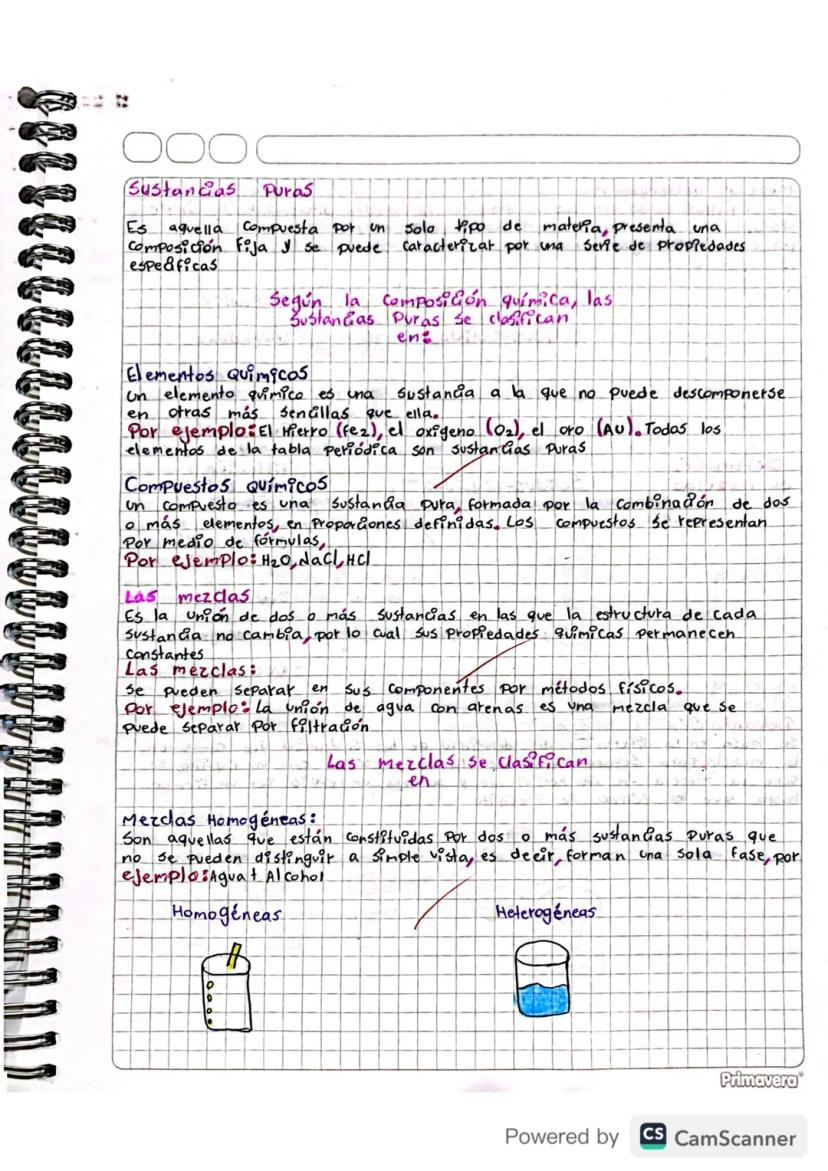 Sustancias Puras
Es aquella compuesta por un solo tipo de materia, presenta una
composición fija y se puede caracterizar por una serie de propiedades
específicas
Según la composición química, las
Sustancias Puras se clasifican
en:
Elementos Químicos
Un elemento químico es una sustancia a la que no puede descomponerse
en otras más sencillas que ella.
Por ejemplo: El Hierro (Fe2), el oxígeno (O2), el oro (AU). Todas los
elementos de la tabla periódica son sustancias puras
Compuestos químicos
Un compuesto es una sustancia pura, formada por la combinación de dos
o más elementos, en proporciones definidas. Los compuestos se representan
Por medio de fórmulas,
Por ejemplo: H2O, NaCl, HCl
Las mezclas
Es la unión de dos o más sustancias en las que la estructura de cada
sustancia no cambia, por lo cual sus propiedades químicas permanecen
constantes
Las mezclas:
Se pueden separar en sus componentes por métodos físicos.
Por ejemplo: la unión de agua con arenas es una mezcla que se
puede separar por filtración
Las mezclas se clasifican
en
Mezclas Homogéneas:
Son aquellas que están constituidas por dos o más sustancias puras que
no se pueden distinguir a simple vista, es decir, forman una sola fase, por
ejemplo: Agua + Alcohol
Homogéneas Heterogéneas
Primavera
Powered by CS CamScanner